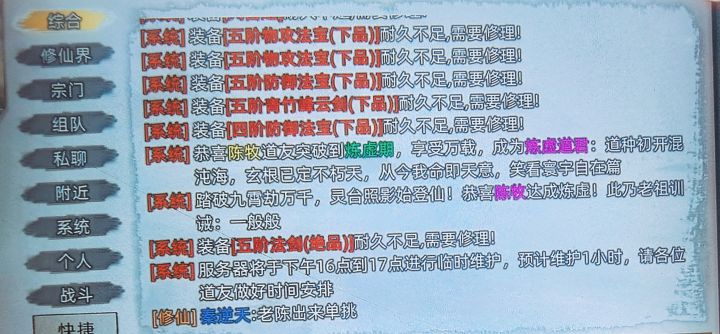 综合
修仙界
宗门
组队
私聊
附近
系统
个人
战斗
快捷
[系统] 装备[五阶物攻法宝(下品)]耐久不足,需要修理!
[系统] 装备[五阶物攻法宝(下品)]耐久不足,需要修理!
[系统] 装备[五阶防御法宝(下品)]耐久不足,需要修理!
[系统] 装备[五阶青竹蜂云剑(下品)]耐久不足,需要修理!
[系统] 装备[四阶防御法宝(下品)]耐久不足,需要修理!
[系统] 恭喜陈牧道友突破到炼虚期，享受万载，成为炼虚道君：道种初开混
沌海，玄根已定不朽天，从今我命即天意，笑看寰宇自在篇
[系统] 踏破九霄劫万千，灵台照影始登仙！恭喜陈牧达成炼虚！此乃老祖训
诫：一般般
[系统] 装备[五阶法剑(绝品)]耐久不足,需要修理!
[系统] 服务器将于下午16点到17点进行临时维护，预计维护1小时，请各位
道友做好时间安排
[修仙] 秦逆天:老陈出来单挑